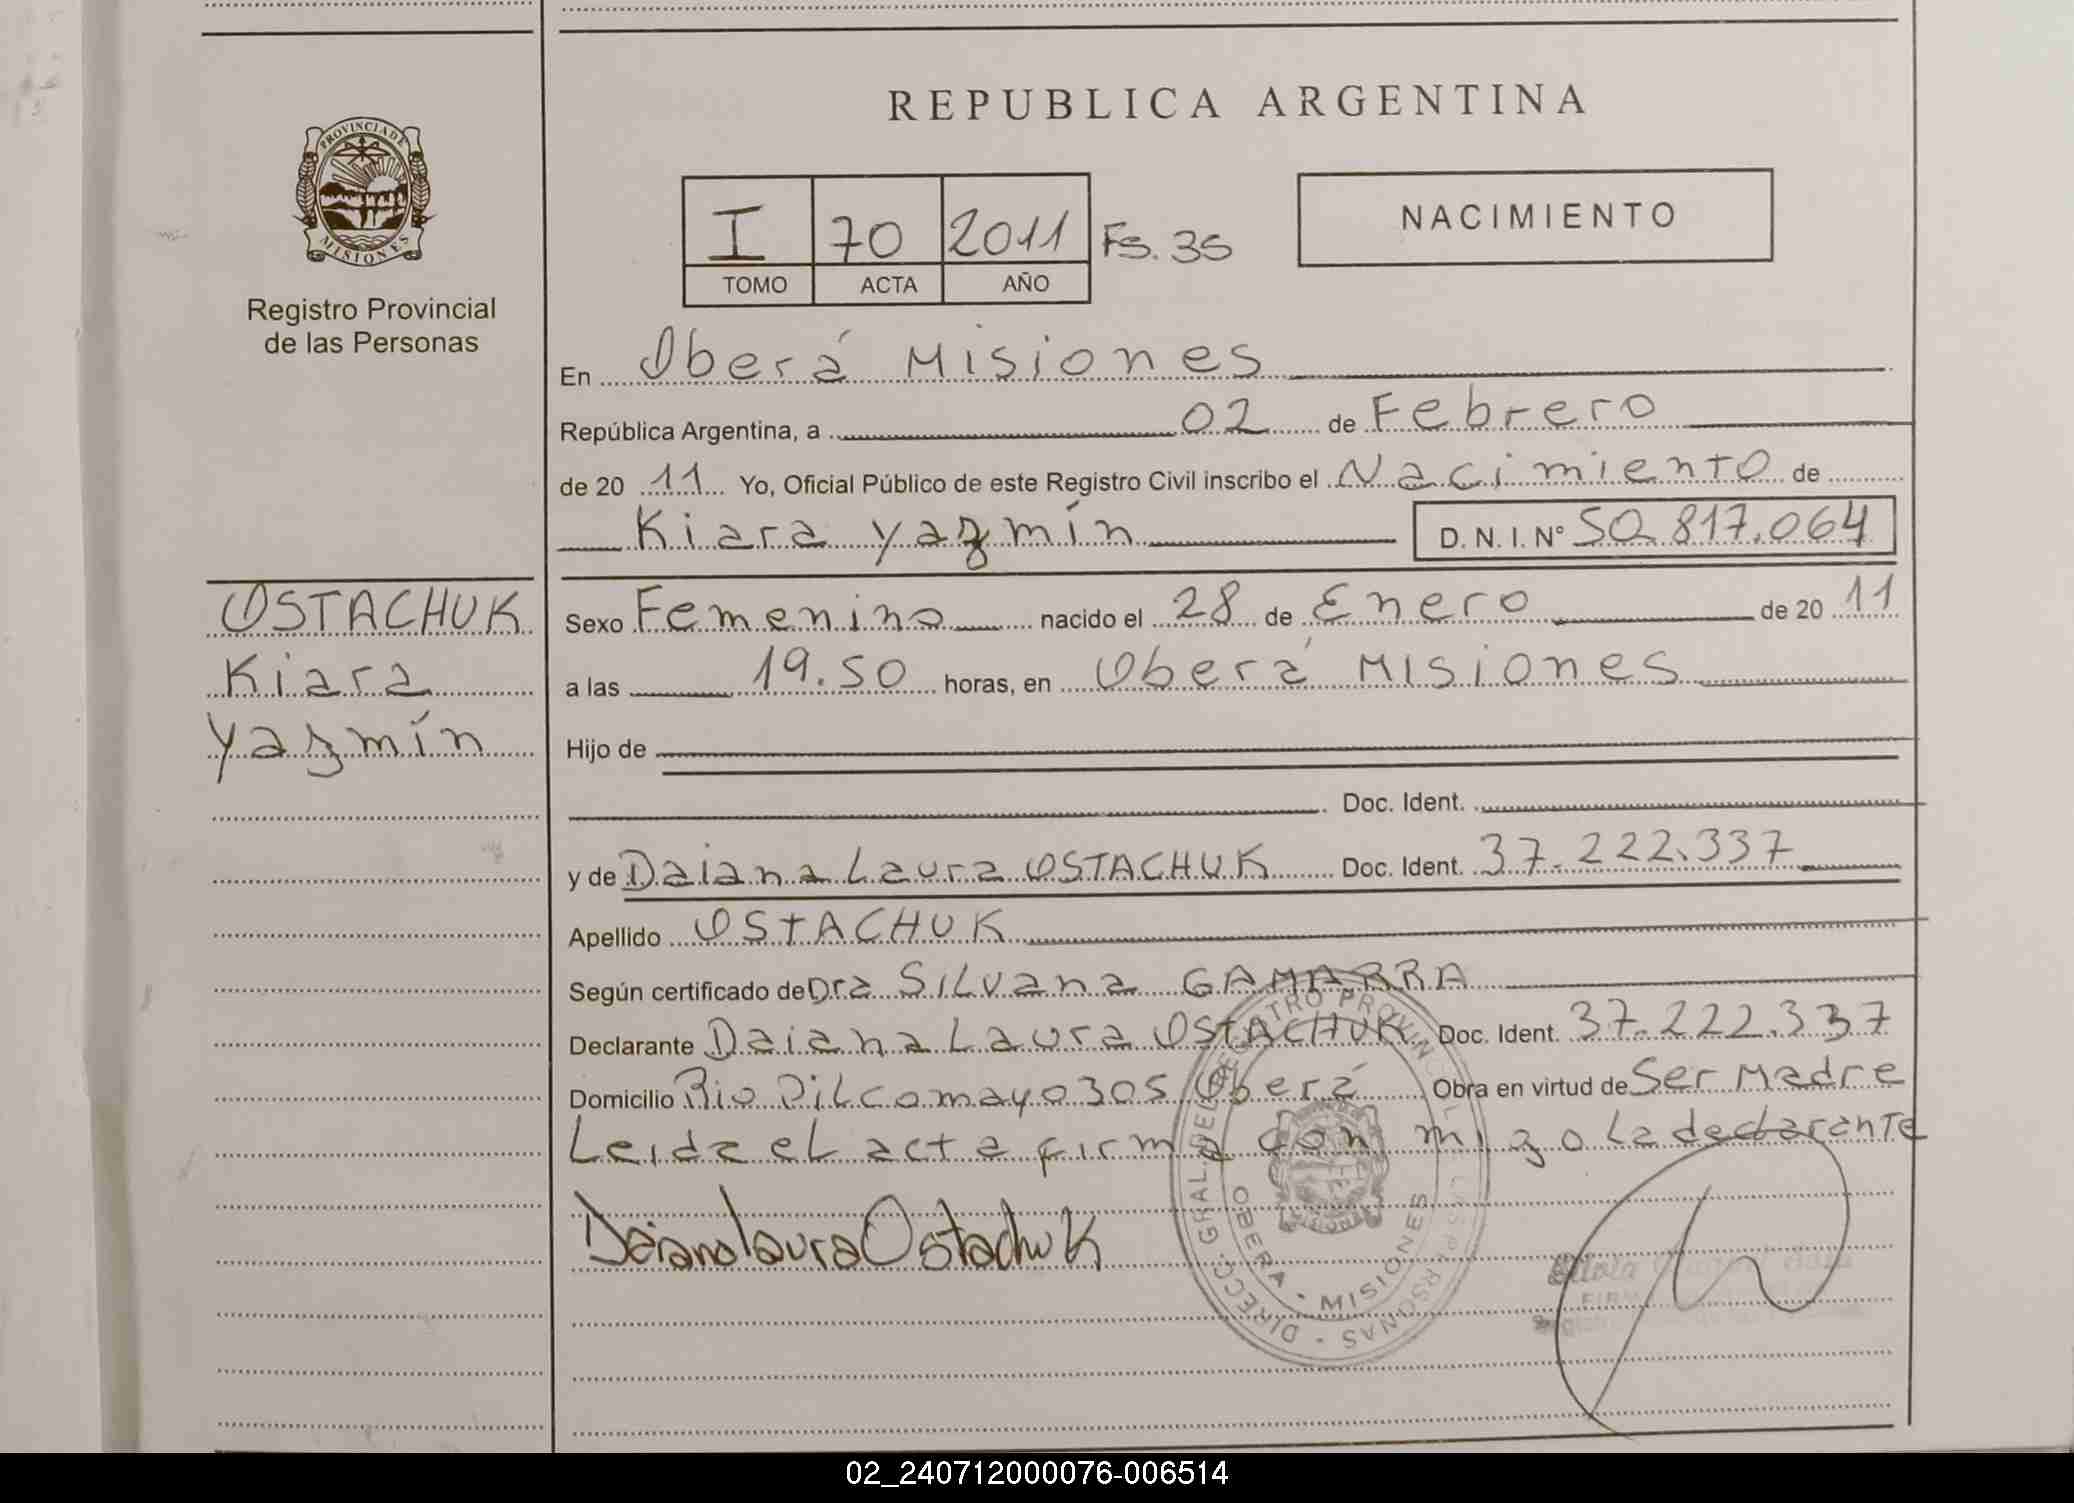 REPUBLICA ARGENTINA
PROVINCIA DE
MISIONES
Registro Provincial
de las Personas
I 70 2011 Fs. 35
TOMO ACTA AÑO
NACIMIENTO
En Oberá Misiones
República Argentina, a 02 de Febrero
de 20 11 Yo, Oficial Público de este Registro Civil inscribo el Nacimiento de
Kiara Yazmín D. N. I. Nº 50.817.064
OSTACHUK
Kiara
Yazmín
Sexo Femenino nacido el 28 de Enero de 20 11
a las 19.50 horas, en Oberá Misiones
Hijo de
Doc. Ident.
y de Daiana Laura OSTACHUK Doc. Ident. 37.222.337
Apellido OSTACHUK
Según certificado de Dra Silvana GAMARRA
Declarante Daiana Laura OSTACHUK Doc. Ident. 37.222.337
Domicilio Rio Pilcomayo 305 Oberá Obra en virtud de Ser Madre
Leida el acta firma con migo la declarante
Daiana laura Ostachuk
DIRECC. GRAL. DEL REGISTRO PROVINCIAL LAS PERSONAS
OBERA - MISIONES
02_240712000076-006514